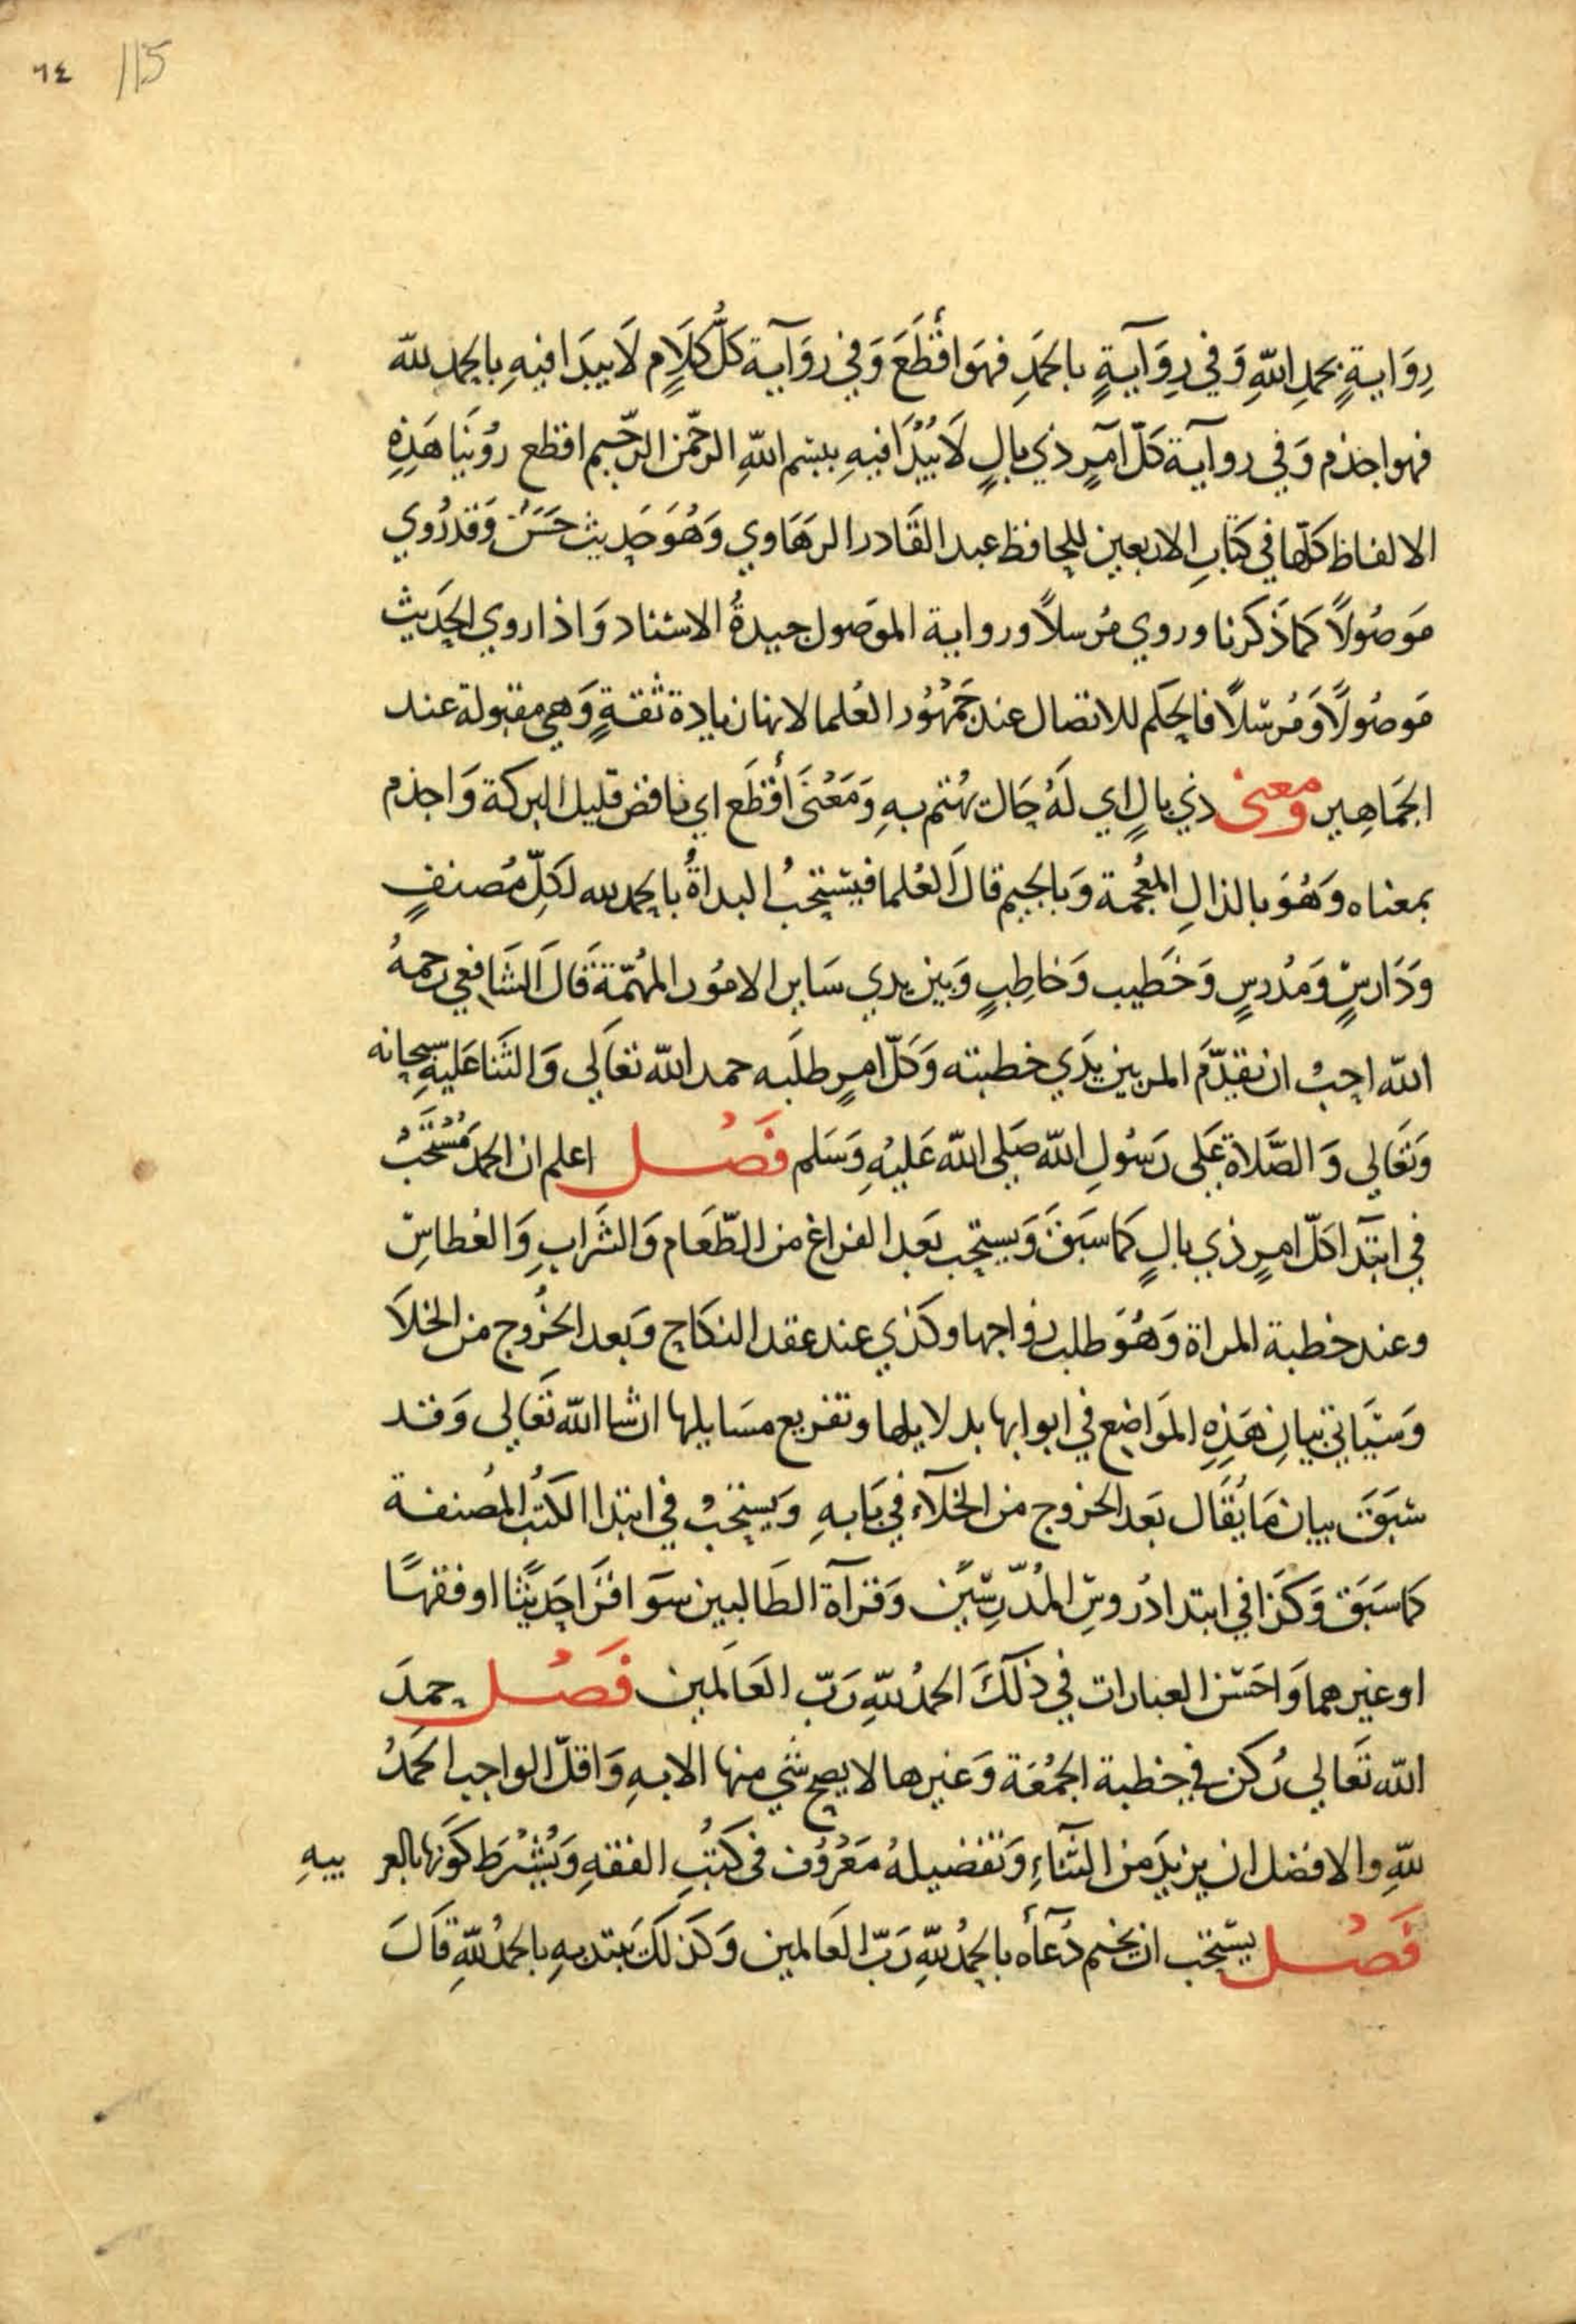 ٦٤ 115
رِوَايةٍ بحمدِ اللّٰهِ وَفي رِوَآيةٍ بالحمَدِ فهوَ اقْطَعَ وَفي روَآية كلُّ كلَامٍ لَا يبدَا فيهِ بالحمد للّٰه
فهو اجذم وَفي روآية كلّ امرٍ ذي بالٍ لَا يُبْدَا فيهِ ببسْم اللّٰهِ الرحمٰن الرحيم اقطع روْينَا هَذِهِ
الالفاظ كلّها في كتَابِ الاربعين للحافظ عبد القَادر الرهَاوي وَهُوَ حَدِيث حَسَنٌ وَقد رُوي
مَوصُولاً كماذَكرنا وروي مُرسلاً ورواية الموَصول جيدةُ الاسْناد وَاذا روي الحدَيث
مَوصُولاً وَمُرسْلاً فالحكم للاتصال عند جَمْهُور العُلما لانها زيادة ثقةٍ وَهي مقبولة عند
الجمَاهِير ومعنى ذي بالٍ اي لَهُ حَال يُهْتم بهِ وَمَعْنىَ أقْطَع اي ناقص قليل البركة وَاجذم
بمعناه وَهُوَ بالذالِ المعْجمة وَبالجيم قالَ العُلما فيسْتحبُ البداةُ بالحمد لله لكلِّ مُصنفٍ
وَدَارسٍ وَمُدرسٍ وَخطَيب وَخاطِبٍ وَبين يدي سَاير الامُور المهُمّة قَالَ الشَافعي رحمهُ
اللّٰه احِبُ ان يقدّمَ المر بين يدَي خطبته وَكلّ امرٍ طلَبه حمد اللّٰه تعَالي وَالثَنا عَليهِ سبحانه
وَتعَالي وَالصَّلاة عَلى رَسُولِ اللّٰه صَلى اللّٰه عَليْهِ وَسَلم فَصْل اعلم ان الحمدَ مُسْتَحَبُ
في ابتدَآ كلّ امرٍ ذي بالٍ كما سَبَقَ وَيستحب بعَد الفراغ من الطّعَام وَالشرَابِ وَالعُطاسِ
وعند خطبة المراة وَهُوَ طلب زواجها وكذي عند عقد النكاح وَبعد الخرُوج من الخلَا
وَسَيَاتي بيانِ هَذِهِ الموَاضِع في ابوابها بدلايلها وتفريع مسَايلها ان شا اللّٰه تعَالي وَقد
سْبَقَ بيان مَا يُقَال بعَد الخروج من الخلآءِ في بَابهِ وَيستحبُ في ابتدا الكتُب المصُنفة
كما سَبَق وَكذا في ابتدا دُروسِ المدُّرسِّيَن وَقرآة الطَالبين سوَا قرَا حَديثًا او فقهًا
او غيرهما وَاحَسْن العبارات في ذَلكَ الحمدُ للّٰهِ رَبّ العَالمَين فَصْل حمدَ
اللّٰه تعَالي رُكن في خطبة الجمُعَة وَغيرها لا يصح شي منها الا بهِ وَاقلّ الواجب الحمَدُ
للّٰهِ والافضل ان يزيدَ من الثَنَآءِ وَتفضيلهُ مَعْرُوف في كتُبِ الفقهِ وَيُشْترَط كوَنها بالعربيهِ
فَصْل يسْتحب ان يختم دُعآهُ بالحمدُ للّٰهِ رَبّ العَالمين وَكذلَكَ يبتديهِ بالحمدُ للّٰهِ قَالَ